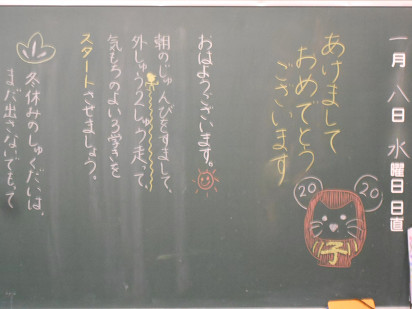 一月八日水曜日日直
あけまして
おめでとう
ございます
20 20
子
おはようございます。
朝のじゅんびをすまして、
外しゅうりくしゅう走って、
気もちのよい3学きを
スタートさせましょう。
冬休みのしゅくだいは、
まだ出さないでもって